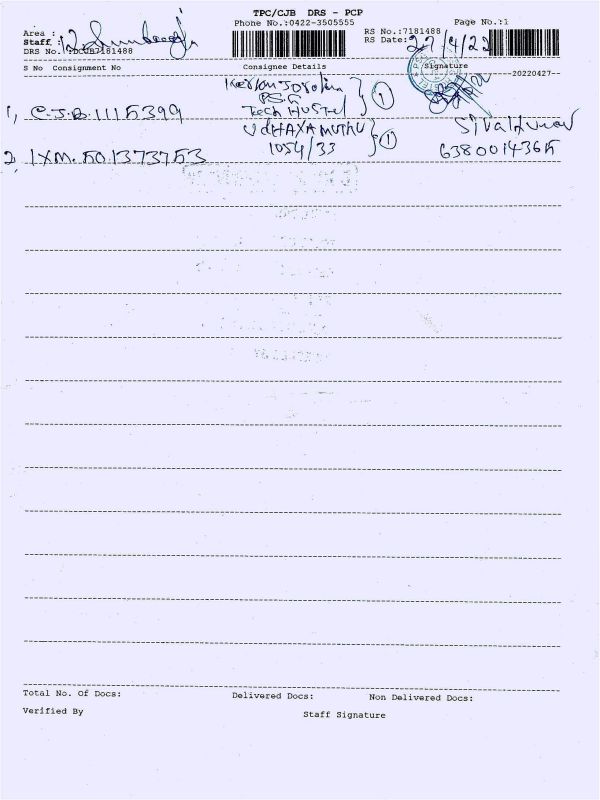 TPC/CJB DRS - PCP
Phone No.:0422-3505555
Page No.:1
Area :
Staff :
DRS No.:DCJB7181488
RS No.:7181488
RS Date: 27/4/22
S No Consignment No Consignee Details Signature
--20220427--
PSG
Tech Hostel
1
1, C.J.B.1115399
UdHAYAMUTHU
1054/33
1
2, IXM.501373753
6380014365
Total No. Of Docs: Delivered Docs: Non Delivered Docs:
Verified By Staff Signature